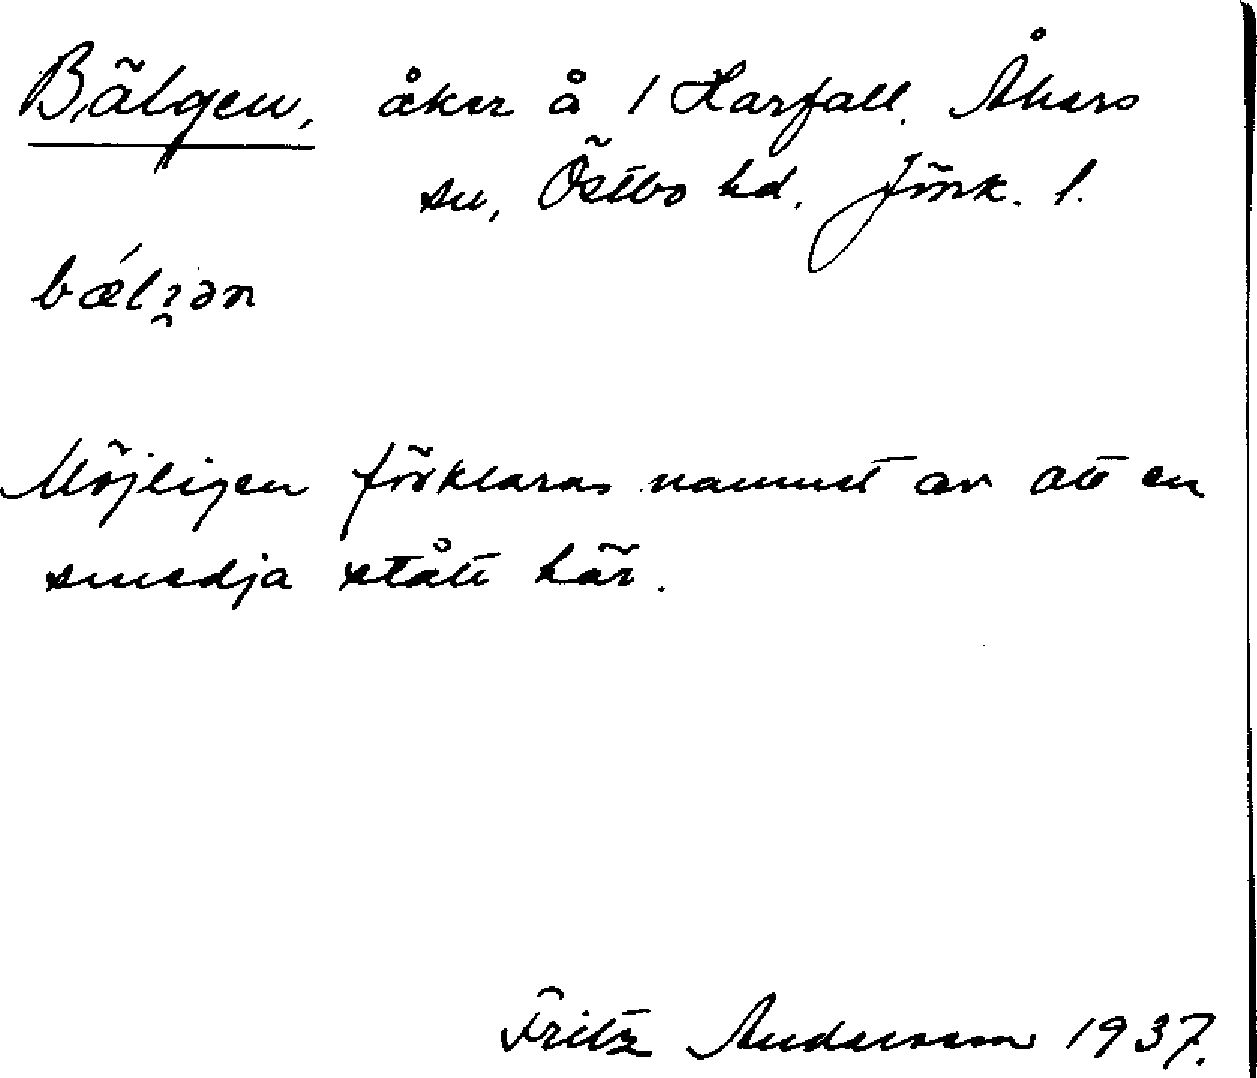 Bälgen, åker å 1 Harfall. Åkers
sn, Östbo hd. Jönk. l.
bǽlʒ̑ən
Möjligen förklaras namnet av att en
smedja stått här.
Fritz Andersson 1937.